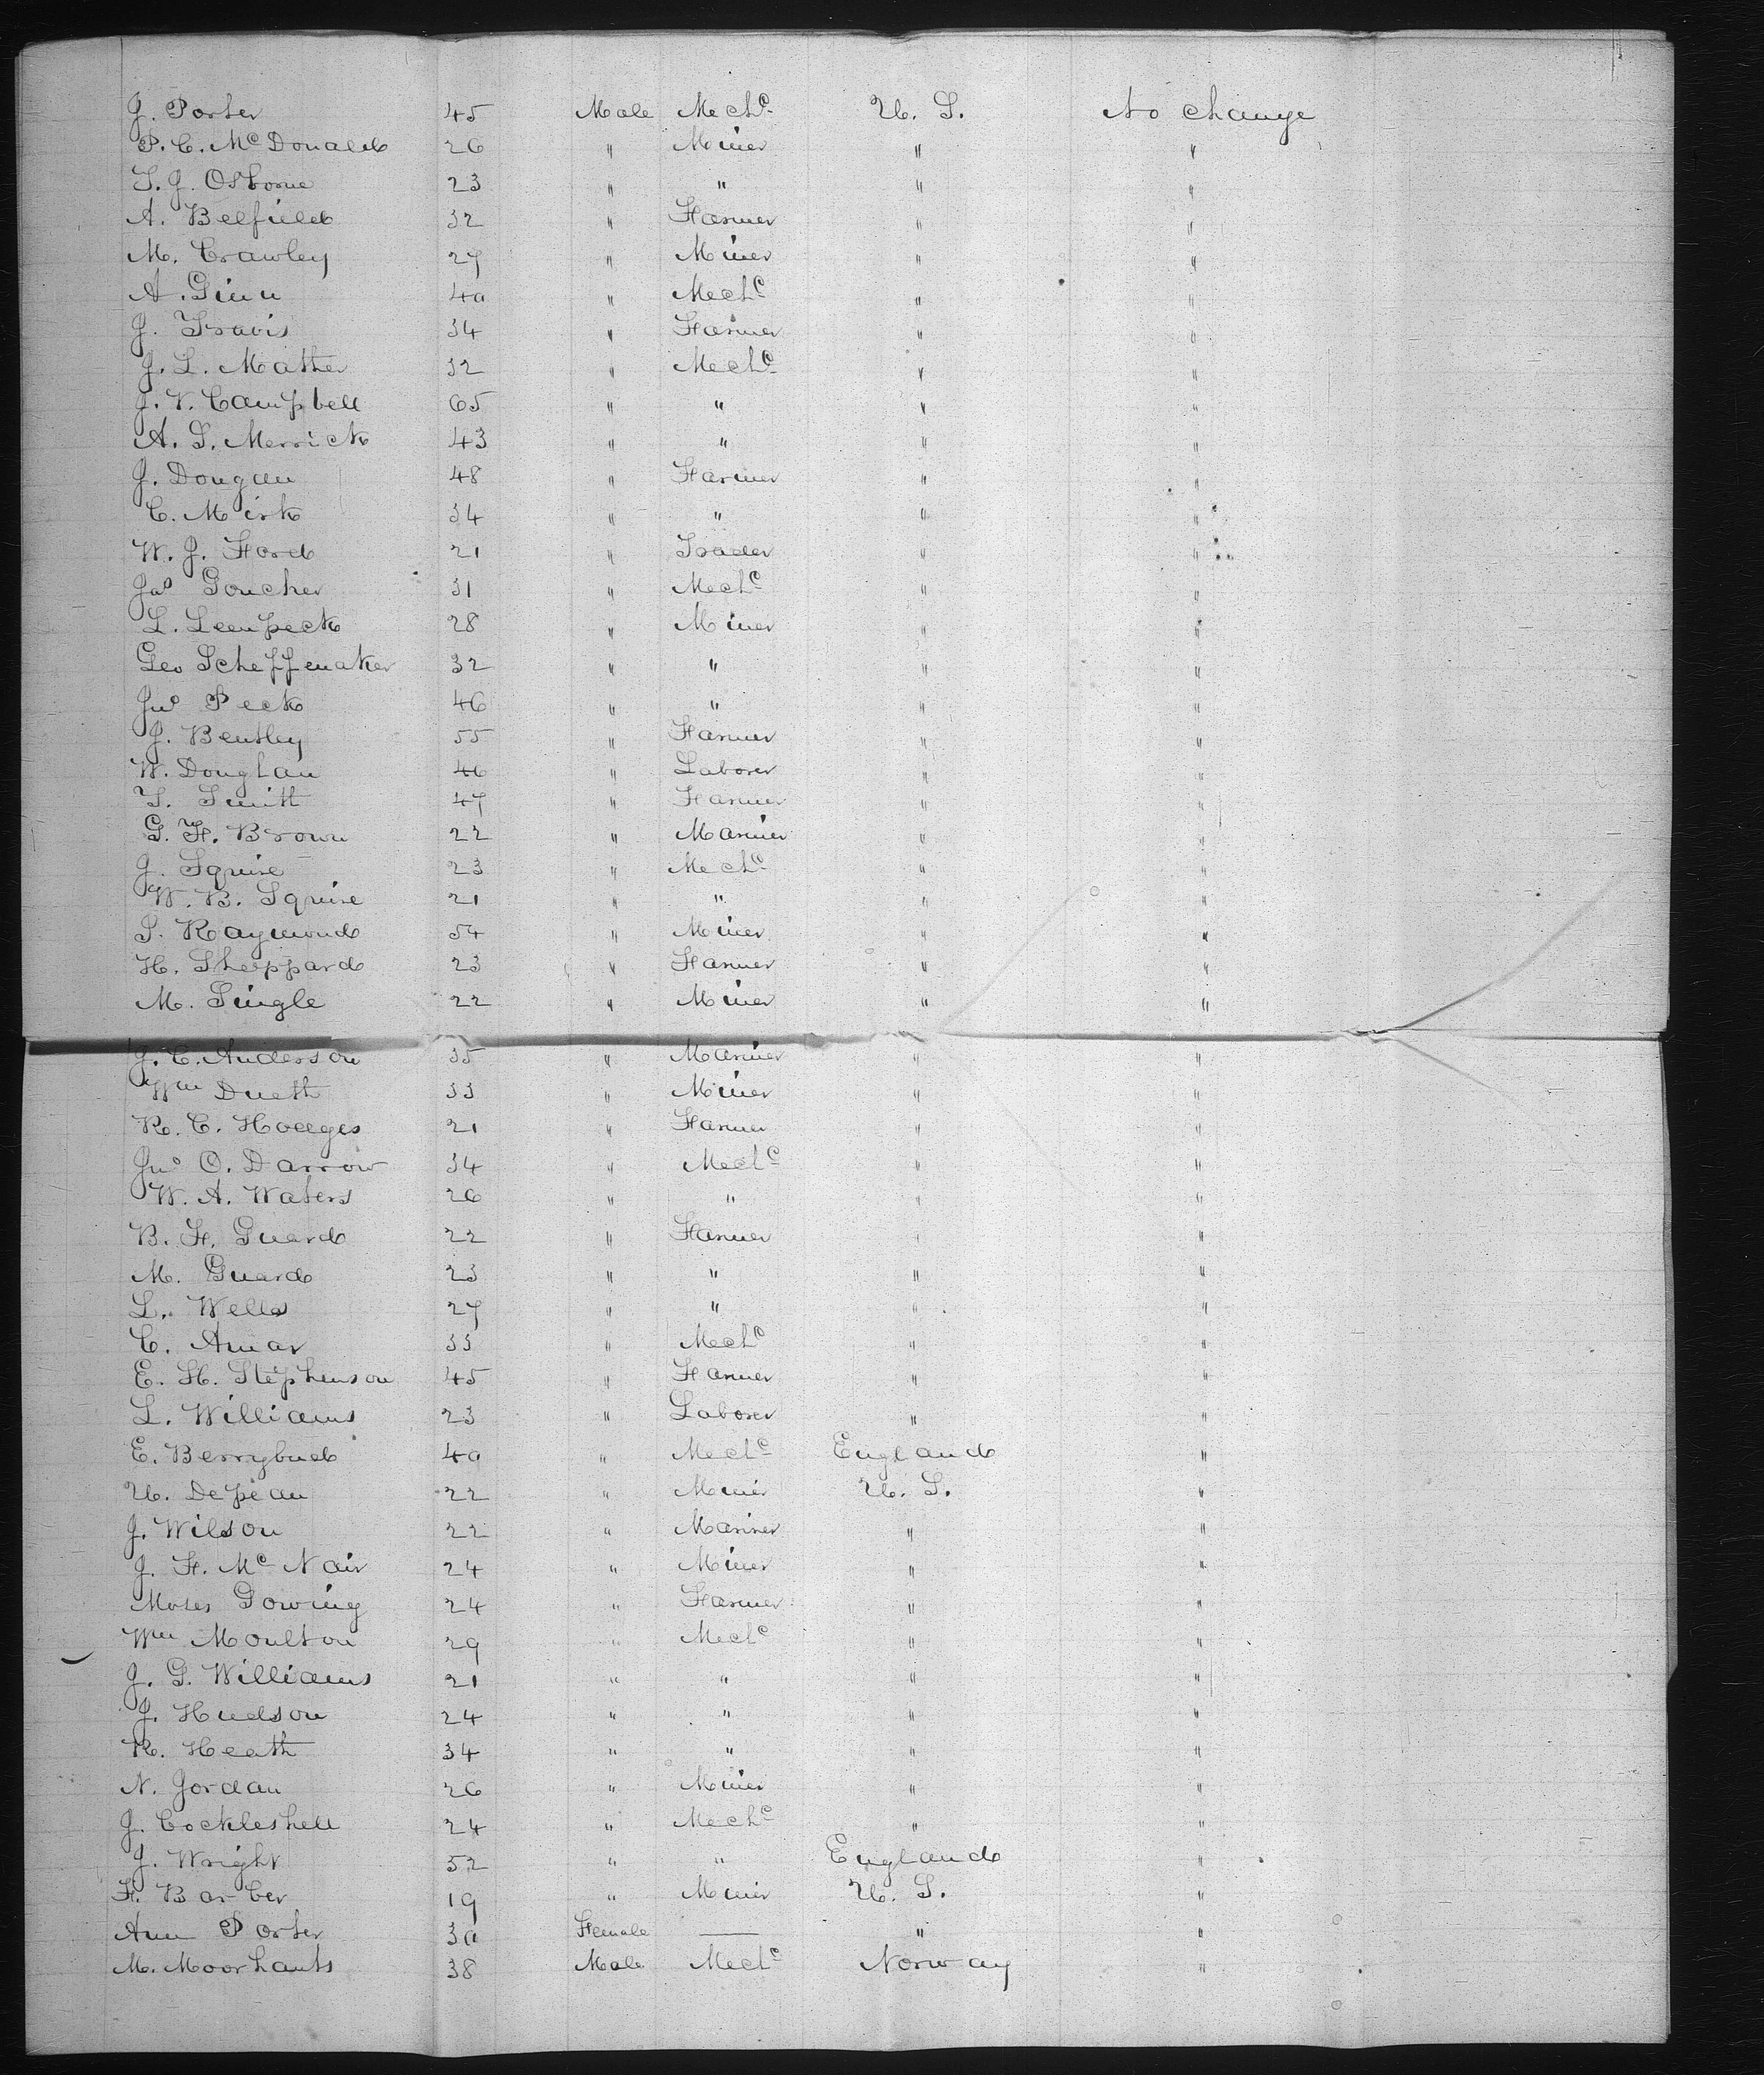 J. Porter 45 Male Mech.c U. S. No change
P. C. McDonald 26 " Miner " "
T. J. Osborne 23 " " " "
A. Belfield 32 " Farmer " "
M. Crawley 27 " Miner " "
A. Ginn 40 " Mech.c " "
J. Travis 34 " Farmer " "
J. L. Mather 32 " Mech.c " "
J. V. Campbell 65 " " " "
A. S. Merrick 43 " " " "
J. Dongan 48 " Farmer " "
C. Mirk 34 " " " "
W. J. Ford 21 " Trader " "
Jas Goucher 31 " Mech.c " "
L. Leenpeck 28 " Miner " "
Geo Scheffmaker 32 " " " "
Jno Peck 46 " " " "
J. Bentley 55 " Farmer " "
W. Douglan 46 " Laborer " "
T. Smith 47 " Farmer " "
G. F. Brown 22 " Mariner " "
J. Squire 23 " Mech.c " "
W. B. Squire 21 " " " "
S. Raymond 54 " Miner " "
H. Sheppard 23 " Farmer " "
M. Single 22 " Miner " "
J. C. Anderson 35 " Mariner " "
Wm Dueth 33 " Miner " "
R. C. Hodges 21 " Farmer " "
Jno O. Darrow 34 " Mech.c " "
W. A. Waters 26 " " " "
B. F. Guard 22 " Farmer " "
M. Guard 23 " " " "
L. Wells 27 " " " "
C. Amar 33 " Mech.c " "
E. H. Stephenson 45 " Farmer " "
L. Williams 23 " Laborer " "
E. Berrybud 40 " Mech.c England "
U. Depean 22 " Miner U. S. "
J. Wilson 22 " Mariner " "
J. F. McNair 24 " Miner " "
Moses Gowing 24 " Farmer " "
Wm Moulton 29 " Mech.c " "
J. G. Williams 21 " " " "
J. Hudson 24 " " " "
R. Heath 34 " " " "
N. Jordan 26 " Miner " "
J. Cockleshell 24 " Mech.c " "
J. Wright 52 " " England "
F. Barber 19 " Miner U. S. "
Ann Porter 30 Female — " "
M. Moorhants 38 Male Mech.c Norway "